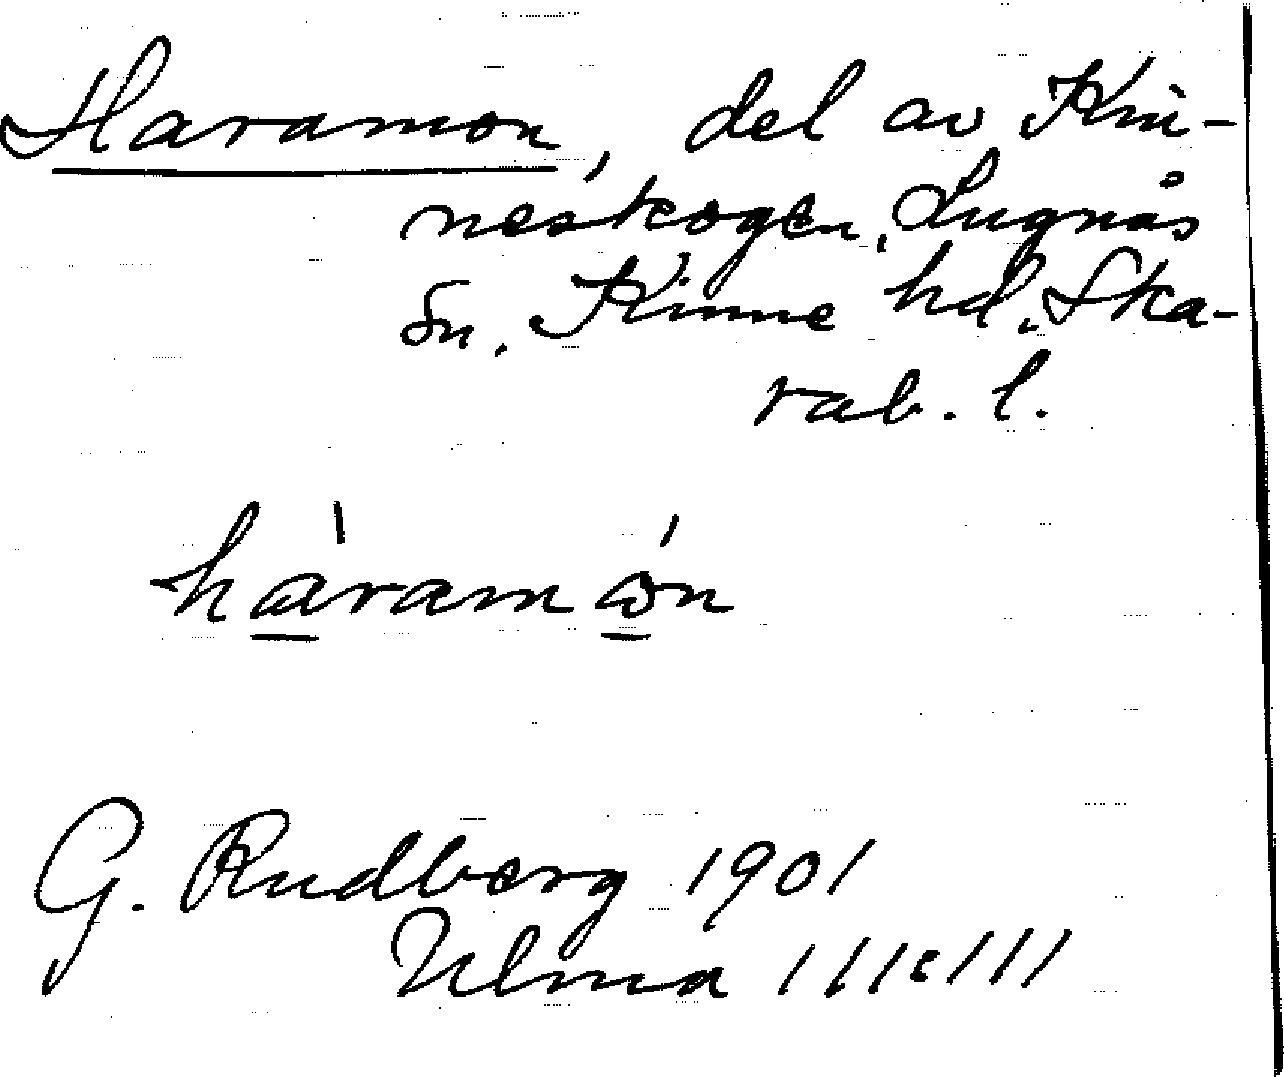 Haramon, del av Kin-
neskogen, Lugnås
sn. Kinne hd. Ska-
rab. l.
håramón
G. Rudberg 1901
Ulma 111:111